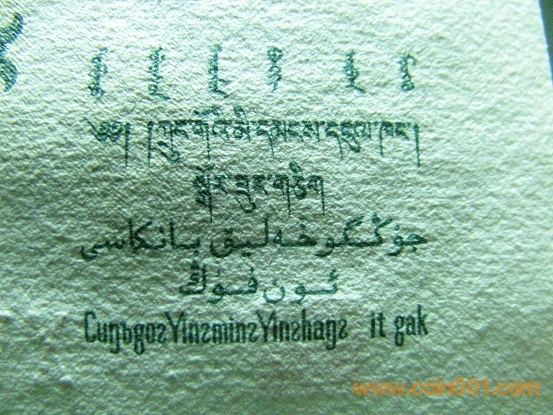 ༄༅། །ཀྲུང་གོའི་མི་དམངས་དངུལ་ཁང་།
སྒོར་ཟུར་གཅིག
جۇڭگو خەلىق بانكاسى
ئون فۇڭ
CuŋƅgoƨYinƨminƨYinƨhaŋƨ it gak
www.coin001.com